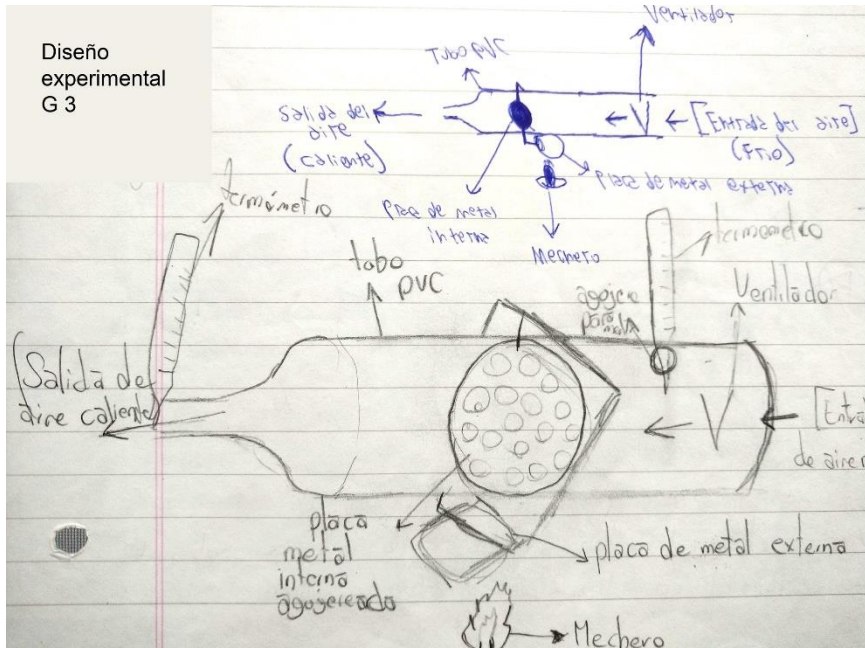 Diseño
experimental
G 3
Ventilador
Tubo PVC
Salida del
aire
(caliente)
V
[Entrada del aire]
(Frio)
Placa de metal externa
Placa de metal
interna
Mechero
termómetro
tubo
PVC
termometro
agojero
para
Ventilador
(Salida de
aire caliente
V
[Entra
de aire
placa
metal
interna
agojereada
placa de metal externa
Mechero